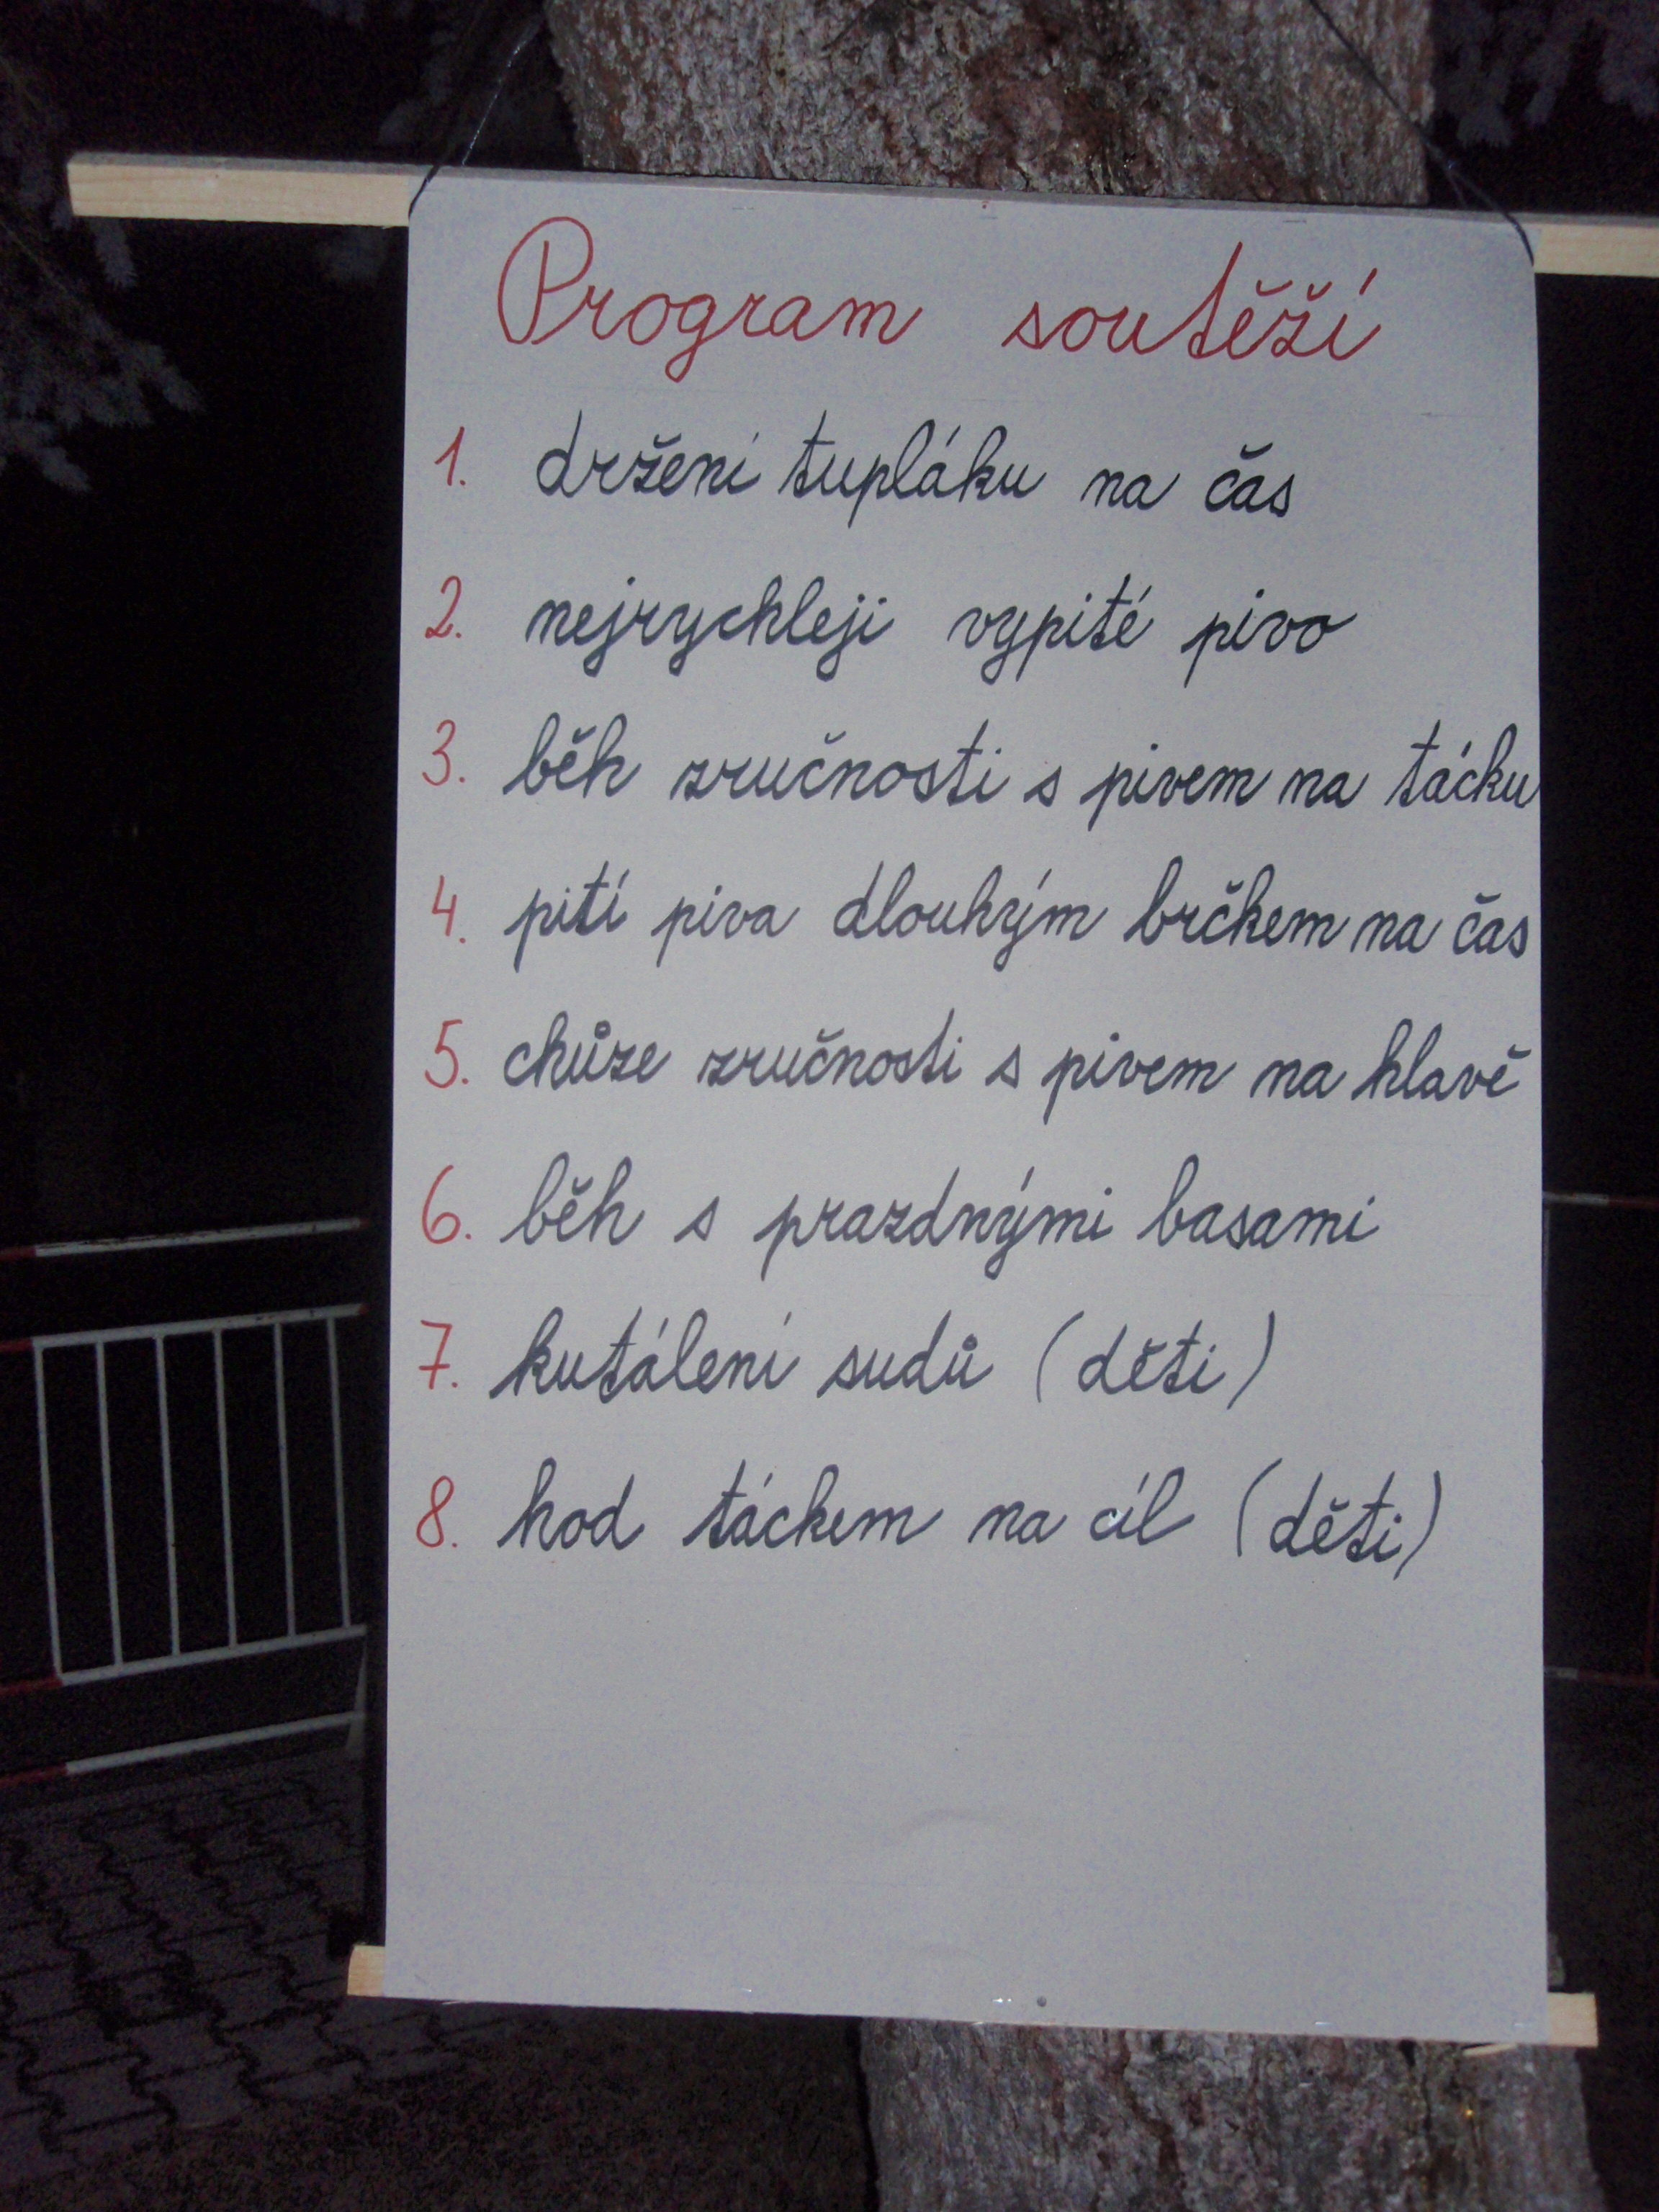 Program soutěží
1. držení tupláku na čas
2. nejrychleji vypité pivo
3. běh zručnosti s pivem na tácku
4. pití piva dlouhým brčkem na čas
5. chůze zručnosti s pivem na hlavě
6. běh s prazdnými basami
7. kutálení sudů (děti)
8. hod táckem na cíl (děti)